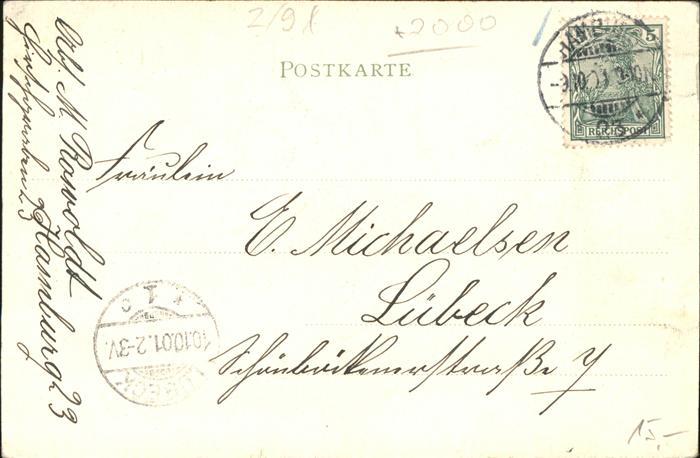 2/91
2000
POSTKARTE
5
REICHSPOST
HAMBURG
23
Fräulein
E. Michaelsen
Lübeck
Schönböckenerstraße 7
LÜBECK
10.10.01.2-3V.
* 1 c
Abs. M. Rowoldt
Hamburg 23
15,-